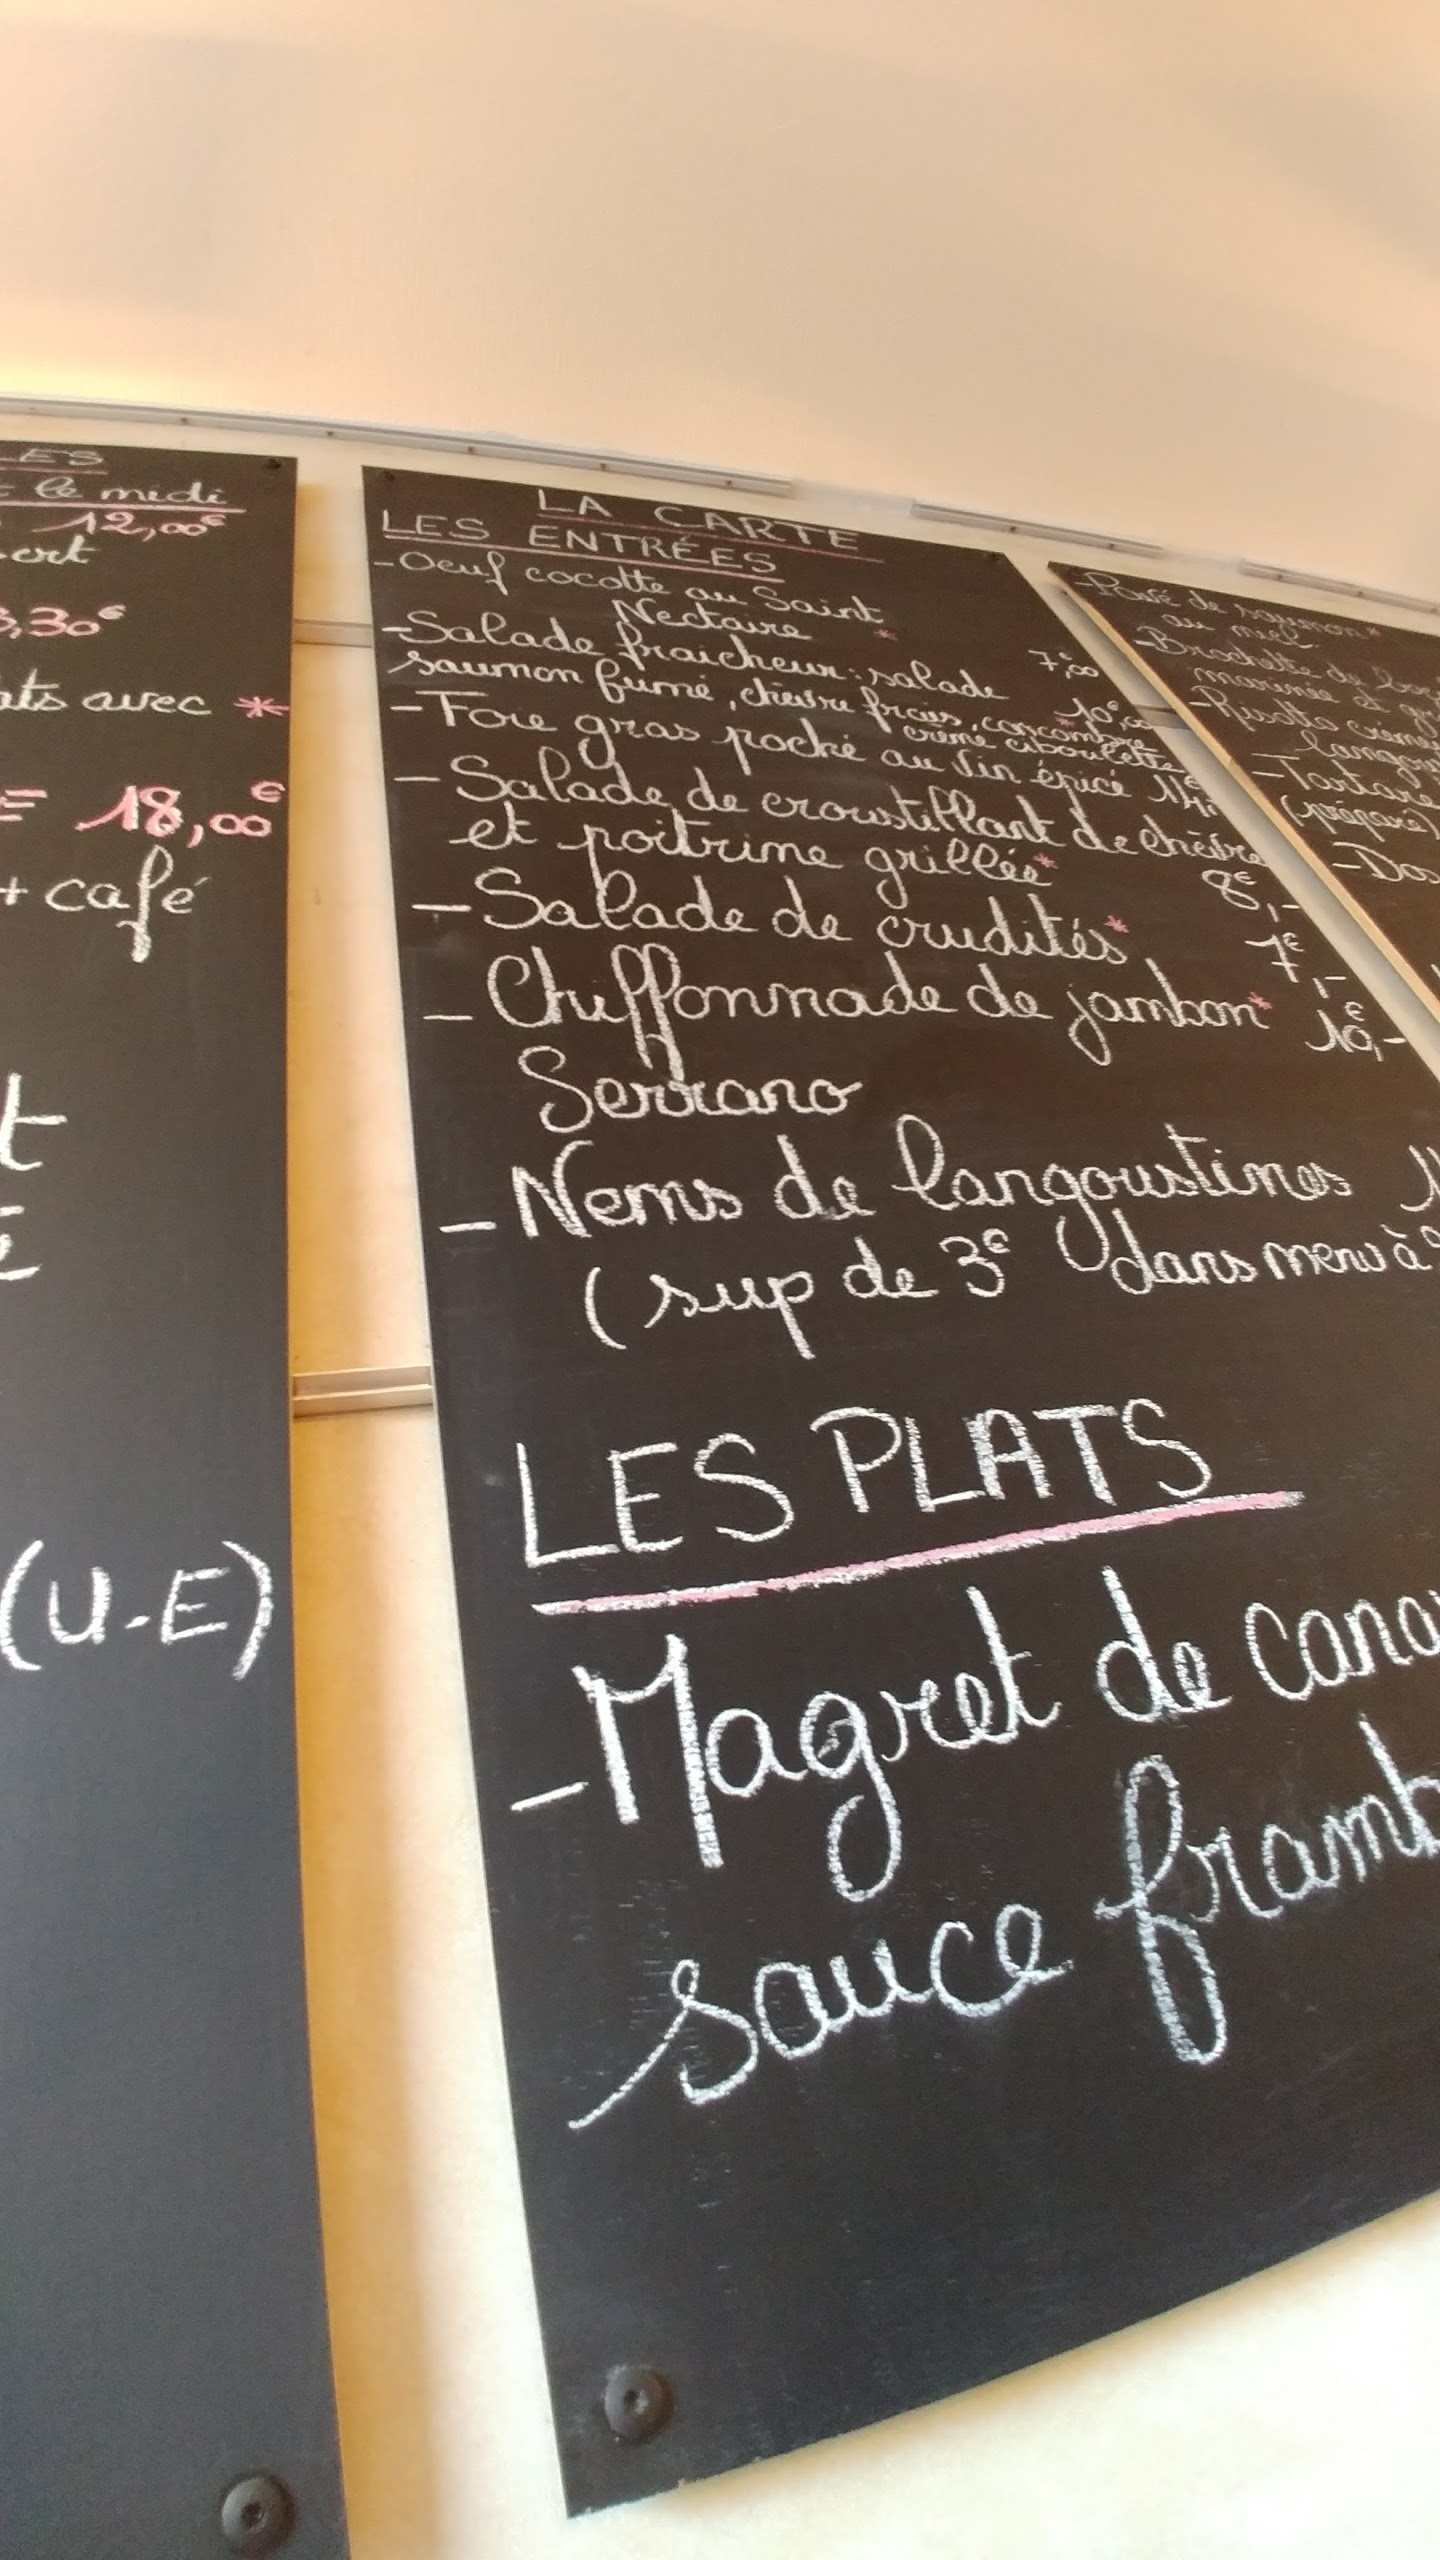 LES
le midi
12,00€
3,30€
avec *
18,00€
+ café
(U.E)
LA CARTE
LES ENTRÉES
- Oeuf cocotte au Saint
Nectaire * 7€,00
- Salade fraicheur : salade 10€,00
saumon fumé, chèvre frais, concombre
crème ciboulette
- Foie gras poché au vin épicé
- Salade de croustillant de chèvre
et poitrine grillée * 8€,-
- Salade de crudités * 7€,-
- Chiffonnade de jambon * 10€,-
Serrano
- Nems de langoustines
(sup de 3€ dans menu à
LES PLATS
- Magret de
sauce
- Pavé de saumon *
au miel
- Brochette de
marinée et
- Risotto
- Tartare
(préparé)